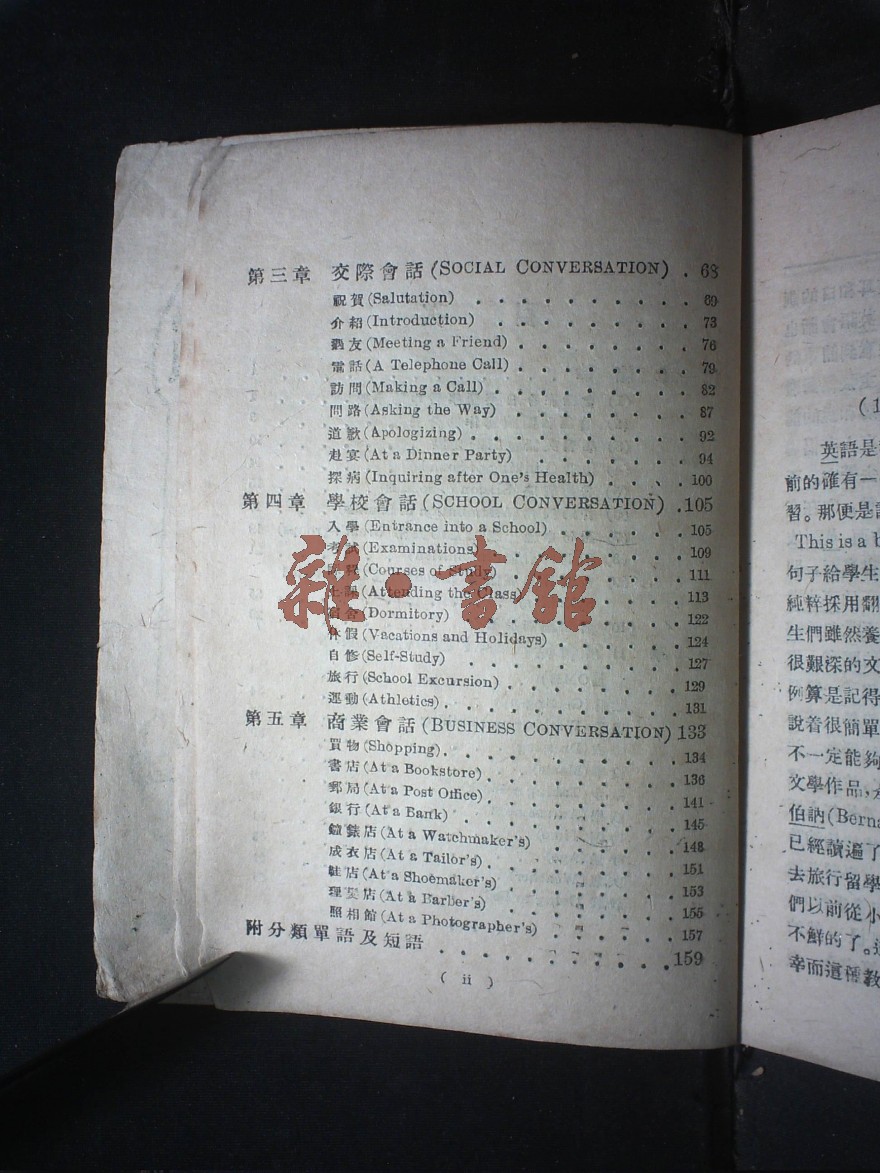 第三章 交際會話 (SOCIAL CONVERSATION) . 68
祝賀 (Salutation) . . . . . . . . . . 69
介紹 (Introduction) . . . . . . . . . 73
遇友 (Meeting a Friend) . . . . . . . . 76
電話 (A Telephone Call) . . . . . . . . 79
訪問 (Making a Call) . . . . . . . . . 82
問路 (Asking the Way) . . . . . . . . 87
道歉 (Apologizing) . . . . . . . . . . 92
赴宴 (At a Dinner Party) . . . . . . . . 94
探病 (Inquiring after One's Health) . . . . 100
第四章 學校會話 (SCHOOL CONVERSATION) . 105
入學 (Entrance into a School) . . . . . . 105
考試 (Examinations) . . . . . . . . . 109
(Courses of Study) . . . . . . . . 111
上課 (Attending the Class) . . . . . . . 113
宿舍 (Dormitory) . . . . . . . . . . 122
休假 (Vacations and Holidays) . . . . . . 124
自修 (Self-Study) . . . . . . . . . . 127
旅行 (School Excursion) . . . . . . . . 129
運動 (Athletics) . . . . . . . . . . 131
雜·書館
第五章 商業會話 (BUSINESS CONVERSATION) 133
買物 (Shopping) . . . . . . . . . . 134
書店 (At a Bookstore) . . . . . . . . 136
郵局 (At a Post Office) . . . . . . . . 141
銀行 (At a Bank) . . . . . . . . . . 145
鐘錶店 (At a Watchmaker's) . . . . . . 148
成衣店 (At a Tailor's) . . . . . . . . 151
鞋店 (At a Shoemaker's) . . . . . . . 153
理髮店 (At a Barber's) . . . . . . . . 155
照相館 (At a Photographer's) . . . . . . 157
附分類單語及短語 . . . . . . . . . . 159
( ii )
(1
英語是
前的確有一
習。那便是
This is a b
句子給學生
純粹採用翻
生們雖然養
很艱深的文
例算是記得
說着很簡單
不一定能夠
文學作品,
伯訥 (Berna
已經讀遍了
去旅行留學
們以前從小
不鮮的了。
幸而這種教